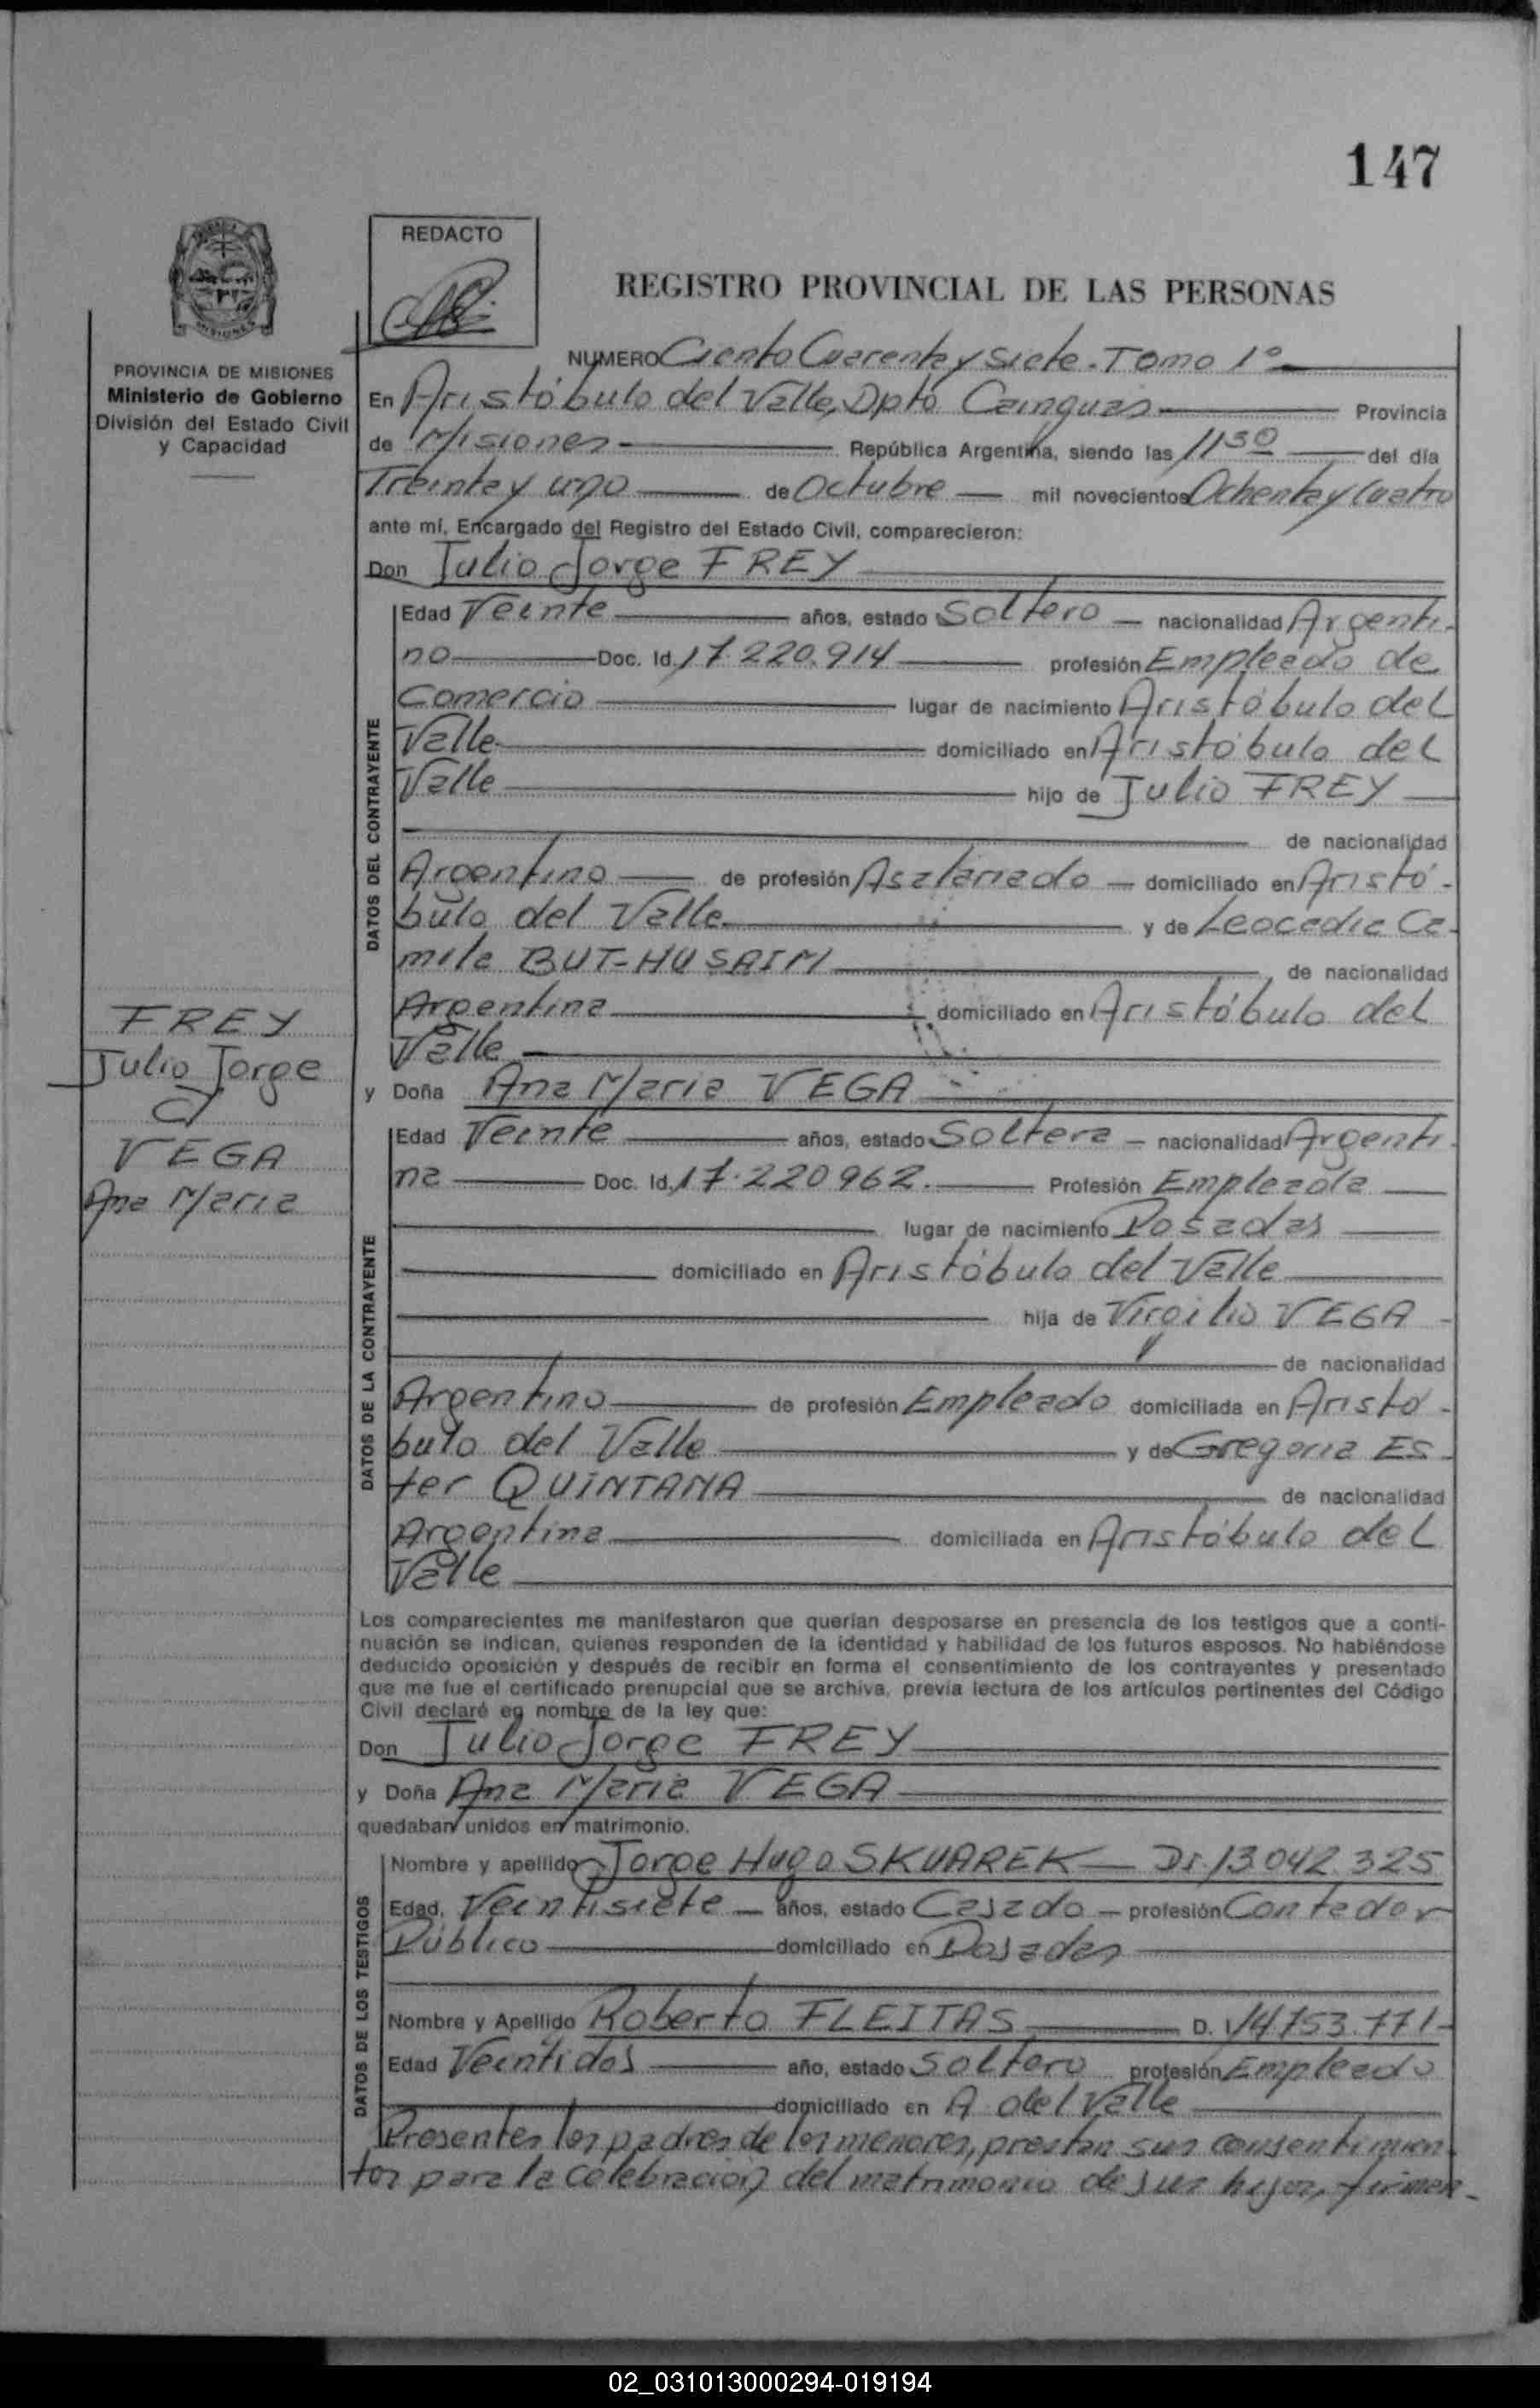 147
REDACTO
REGISTRO PROVINCIAL DE LAS PERSONAS
PROVINCIA DE MISIONES
Ministerio de Gobierno
División del Estado Civil
y Capacidad
NUMERO Ciento Cuarenta y Siete. Tomo 1º
En Aristóbulo del Valle, Dpto Cainguas Provincia
de Misiones República Argentina, siendo las 11 30 del día
Treinta y uno de Octubre mil novecientos Ochenta y Cuatro
ante mí, Encargado del Registro del Estado Civil, comparecieron:
Don Julio Jorge FREY
DATOS DEL CONTRAYENTE
Edad Veinte años, estado Soltero nacionalidad Argenti-
no Doc. Id. 17.220.914 profesión Empleado de
Comercio lugar de nacimiento Aristóbulo del
Valle domiciliado en Aristóbulo del
Valle hijo de Julio FREY
de nacionalidad
Argentino de profesión Asalariado domiciliado en Aristó-
bulo del Valle y de Leocadia Ca-
mila BUT-HUSAIM de nacionalidad
Argentina domiciliado en Aristóbulo del
Valle
FREY
Julio Jorge
c/
VEGA
Ana Maria
y Doña Ana Maria VEGA
DATOS DE LA CONTRAYENTE
Edad Veinte años, estado Soltera nacionalidad Argenti-
na Doc. Id. 17.220962. Profesión Empleada
lugar de nacimiento Posadas
domiciliado en Aristóbulo del Valle
hija de Virgilio VEGA
de nacionalidad
Argentino de profesión Empleado domiciliada en Aristó-
bulo del Valle y de Gregoria Es-
ter QUINTANA de nacionalidad
Argentina domiciliada en Aristóbulo del
Valle
Los comparecientes me manifestaron que querían desposarse en presencia de los testigos que a conti-
nuación se indican, quienes responden de la identidad y habilidad de los futuros esposos. No habiéndose
deducido oposición y después de recibir en forma el consentimiento de los contrayentes y presentado
que me fue el certificado prenupcial que se archiva, previa lectura de los artículos pertinentes del Código
Civil declaré en nombre de la ley que:
Don Julio Jorge FREY
y Doña Ana Maria VEGA
quedaban unidos en matrimonio.
DATOS DE LOS TESTIGOS
Nombre y apellido Jorge Hugo SKUAREK DI 13.042.325
Edad, Veintisiete años, estado Casado profesión Contador
Público domiciliado en Posadas
Nombre y Apellido Roberto FLEITAS D. I 14.753.771
Edad Veintidos año, estado Soltero profesión Empleado
domiciliado en A del Valle
Presentes los padres de los menores, prestan sus consentimien-
tos para la celebración del matrimonio de sus hijos, firman-
02_031013000294-019194